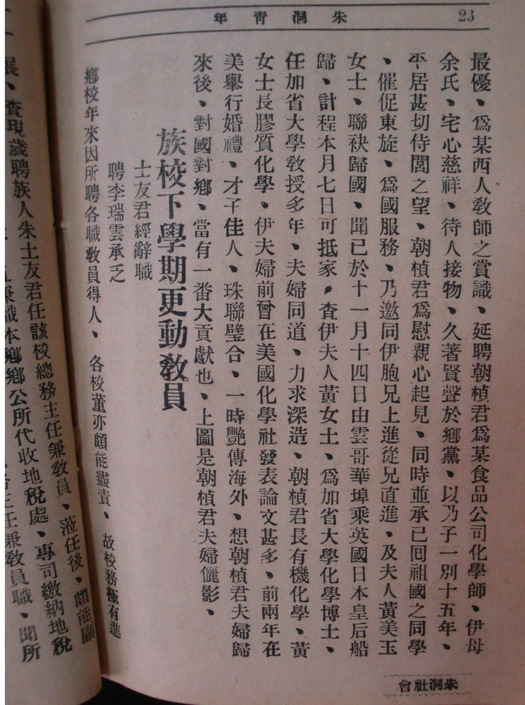 朱洞青年
23
最優、爲某西人敎師之賞識、延聘朝楨君爲某食品公司化學師、伊母
余氏、宅心慈祥、待人接物、久著賢聲於鄉黨、以乃子一別十五年、
平居甚切侍閭之望、朝楨君爲慰親心起見、同時並承已囘祖國之同學
、催促東旋、爲國服務、乃邀同伊胞兄上進從兄直進、及夫人黃美玉
女士、聯袂歸國、聞已於十一月十四日由雲哥華埠乘英國日本皇后船
歸、計程本月七日可抵家、査伊夫人黃女士、爲加省大學化學博士、
任加省大學敎授多年、夫婦同道、力求深造、朝楨君長有機化學、黃
女士長膠質化學、伊夫婦前曾在美國化學社發表論文甚多、前兩年在
美舉行婚禮、才子佳人、珠聯璧合、一時艷傳海外、想朝楨君夫婦歸
來後、對國對鄉、當有一番大貢獻也、上圖是朝楨君夫婦儷影、
族校下學期更動敎員
士友君經辭職
聘李瑞雲承乏
鄉校年來因所聘各職敎員得人、各校董亦頗能盡責、故校務極有進
展、査現歲聘族人朱士友君任該校總務主任兼敎員、蒞任後、頗能圖
兼職本鄉鄉公所代收地稅處、專司繳納地稅
主任兼敎員職、聞所
朱洞社會